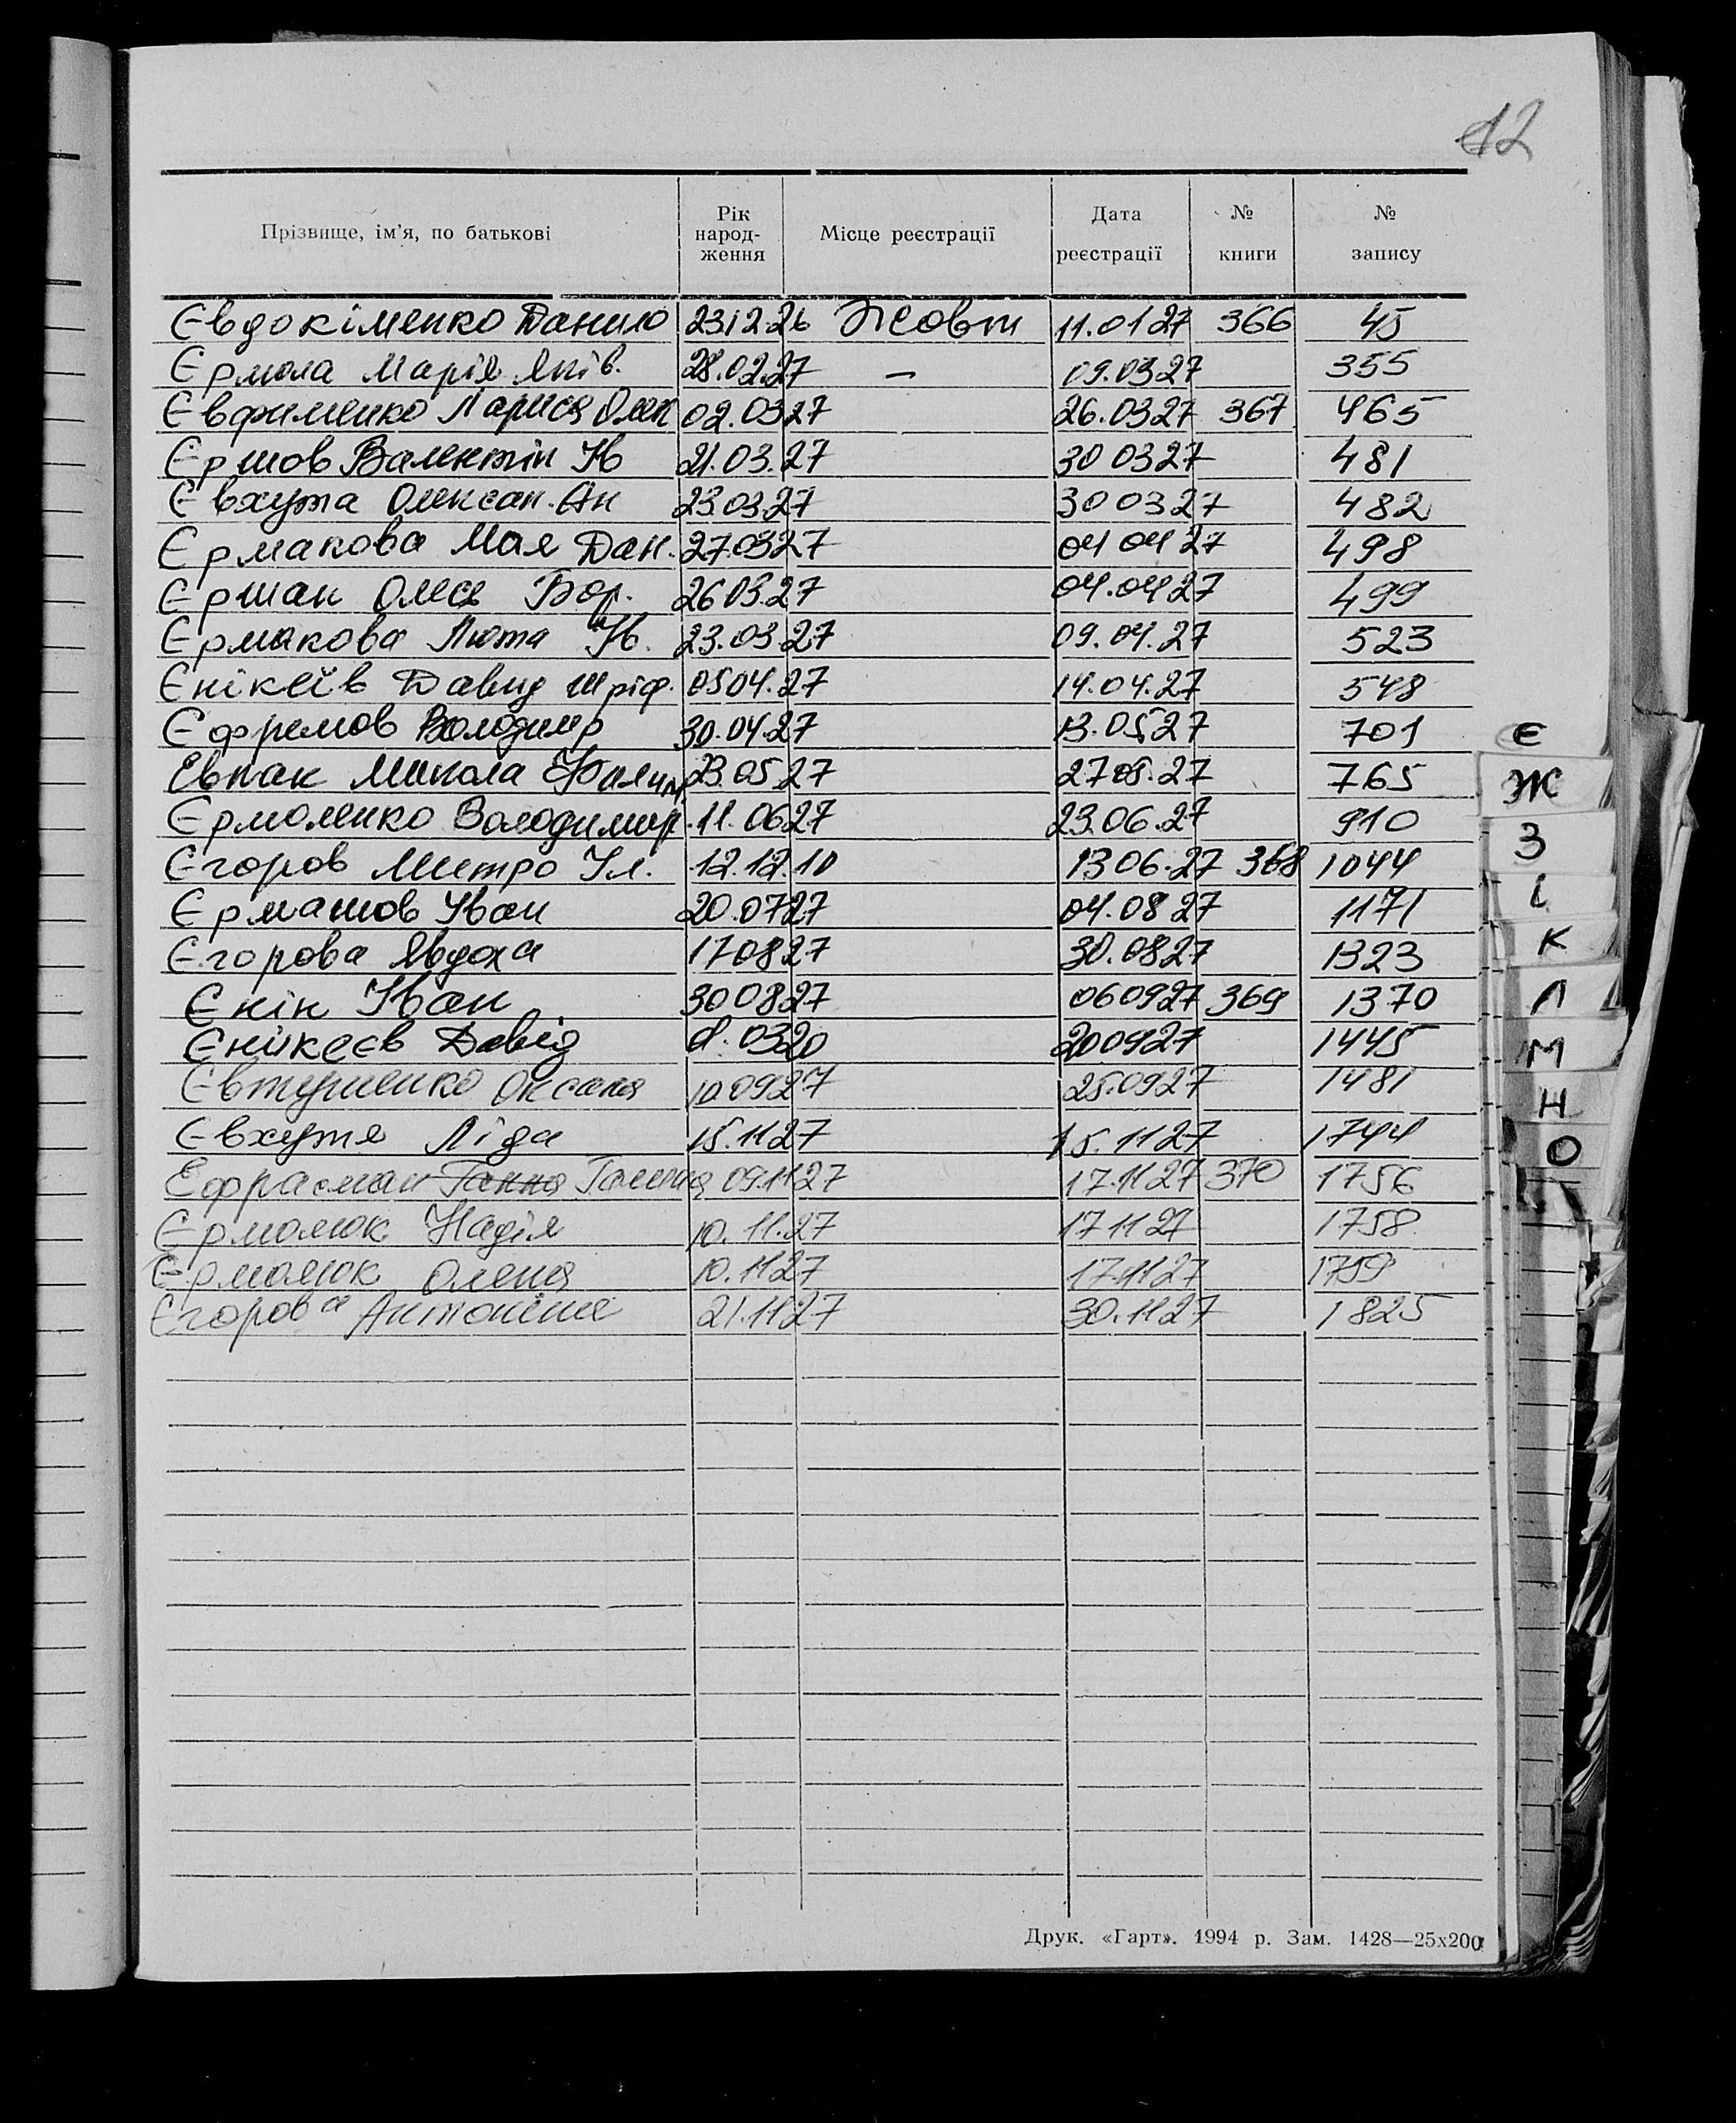 12
Прізвище, ім'я, по батькові Рік народ-ження Місце реєстрації Дата реєстрації № книги № запису
Євдокіменко Данило 23.12.26 Жовт 11.01 27 366 45
Єрмола Марія Яків. 28.02.27 — 09.03 27 355
Євфименко Лариса Олек 02.03 27 26.03 27 367 465
Єршов Валентін Ів 21.03.27 30 03 27 481
Євхута Олексан. Ан 23.03.27 30 03 27 482
Єрмакова Мая Дан. 27.03 27 04 04 27 498
Єршак Олесь Бор. 26 03.27 04.04 27 499
Єрмакова Люта Ів. 23.03.27 09.04.27 523
Єнікеїв Давид Шріф. 05 04.27 14.04.27 548
Єфремов Володимир 30.04.27 13.05 27 701
Евпак Микола 23.05.27 27 05.27 765
Єрмоленко Володимир. 11.06 27 23.06.27 910
Єгоров Митро Ул. 12.12.10 13 06.27 368 1044
Єрмашов Іван 20.07 27 04.08 27 1171
Єгорова Явдоха 17 08 27 30.08 27 1323
Єкін Іван 30 08 27 06 09 27 369 1370
Єнікеєв Давід 03 20 20 09 27 1445
Євтушенко Оксана 10 09 27 25.09 27 1481
Євхутя Ліда 15.11 27 15.11 27 1744
Ефрасман Ганна Галина 09.11 27 17.11 27 370 1756
Єрмолюк Надія 10.11.27 17 11 27 1758
Єрмолюк Олена 10.11 27 17.11 27 1759
Єгорова Антоніна 21.11 27 30.11 27 1825
Є
Ж
З
І
К
Л
М
Н
О
Друк. «Гарт». 1994 р. Зам. 1428—25х200